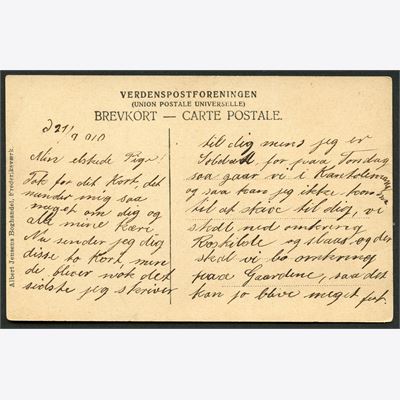 VERDENSPOSTFORENINGEN
(UNION POSTALE UNIVERSELLE)
BREVKORT — CARTE POSTALE.
Albert Jensens Boghandel, Frederiksværk.
Min elskede Pige!
Tak for det Kort, det
minder mig saa
meget om dig og
alle mine kæri
Nu sender jeg dig
disse to Kort, men
de bliver nok det
sidste jeg skriver
til dig mens jeg er
Soldat, for paa Torsdag
saa gaar vi i
og saa kan jeg ikke komme
til at skive til dig, vi
skal ned omkring
Roskilde og slaas, og der
skal vi bo omkring
paa Gaardene, saa det
kan jo blive meget fint.